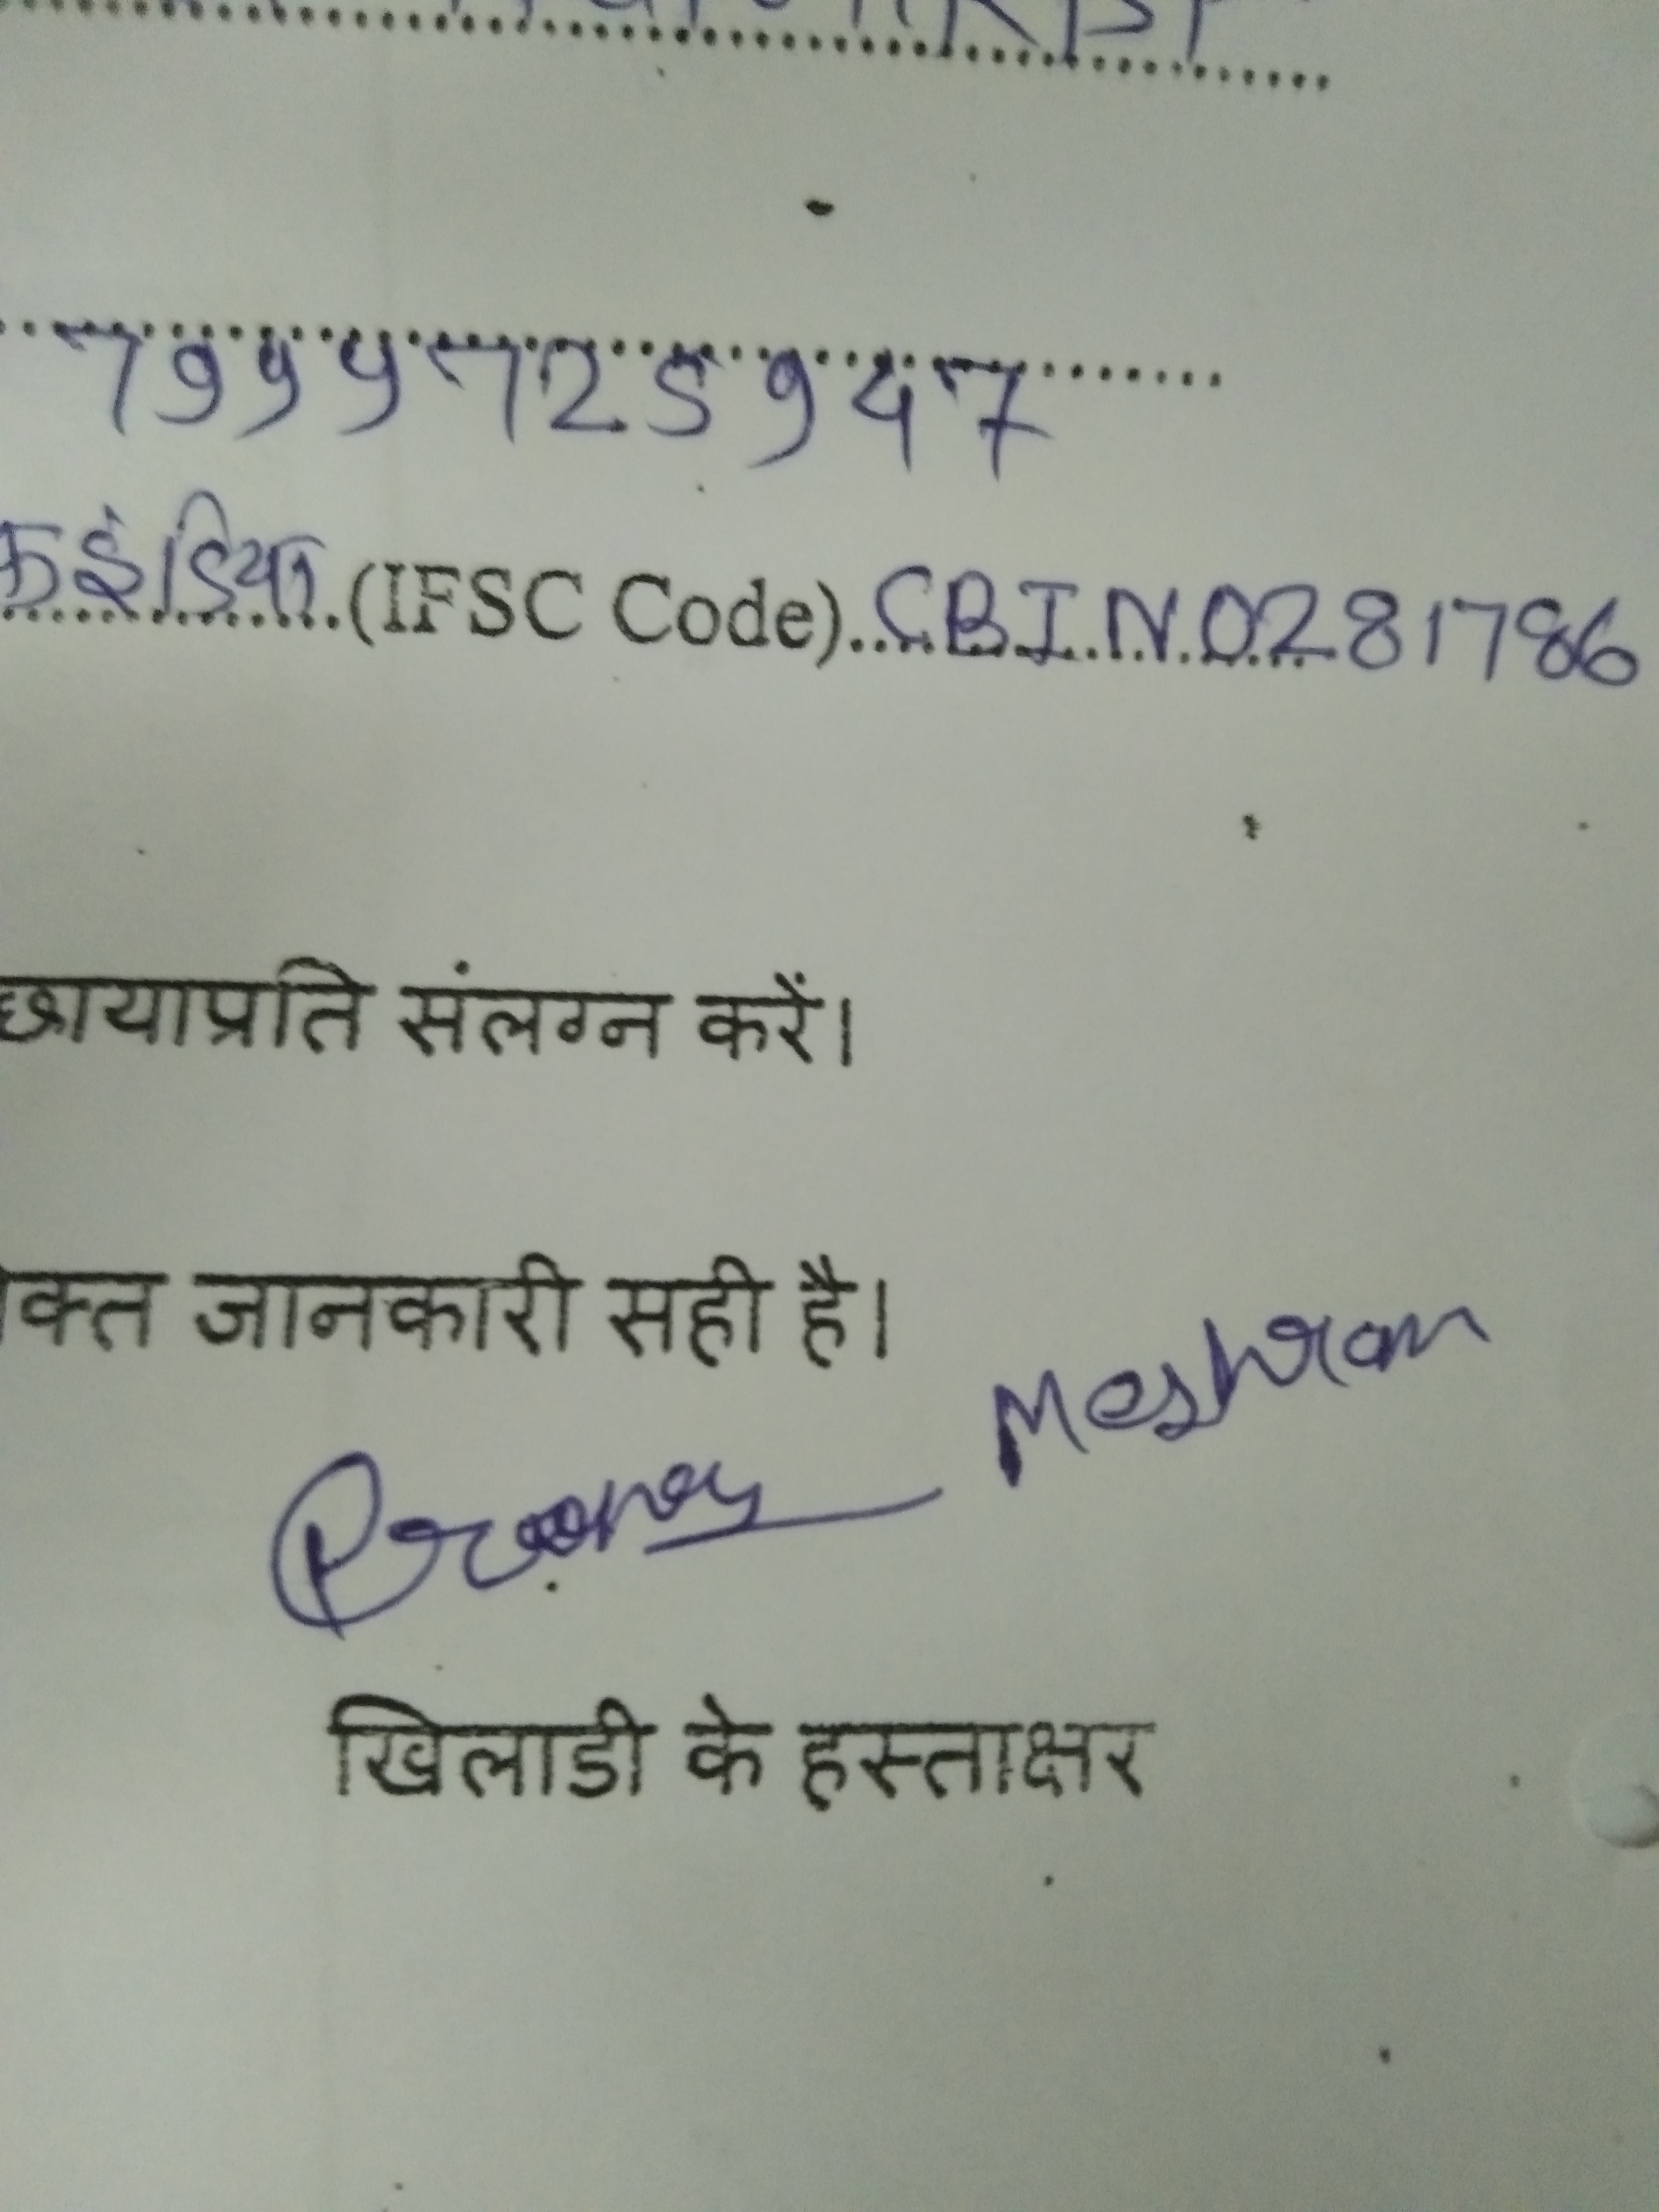 7999725947
क इंडिया (IFSC Code) CBIN0281786
छायाप्रति संलग्न करें।
क्त जानकारी सही है।
Meshram
खिलाडी के हस्ताक्षर